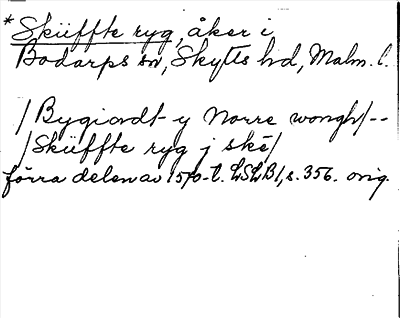 * Sküffte ryg, åker i
Bodarps sn, Skytts hd, Malm. l.
/Bygiordt y Norre wongh/--
/Sküffte ryg j skē/
förra delen av 1570-t. LSLB1, s. 356. orig.